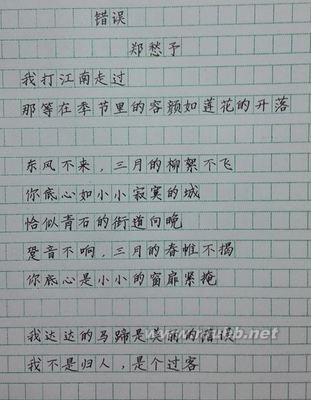 错误
郑愁予
我打江南走过
那等在季节里的容颜如莲花的开落
东风不来，三月的柳絮不飞
你底心如小小寂寞的城
恰似青石的街道向晚
跫音不响，三月的春帷不揭
你底心是小小的窗扉紧掩
我达达的马蹄是美丽的错误
我不是归人，是个过客